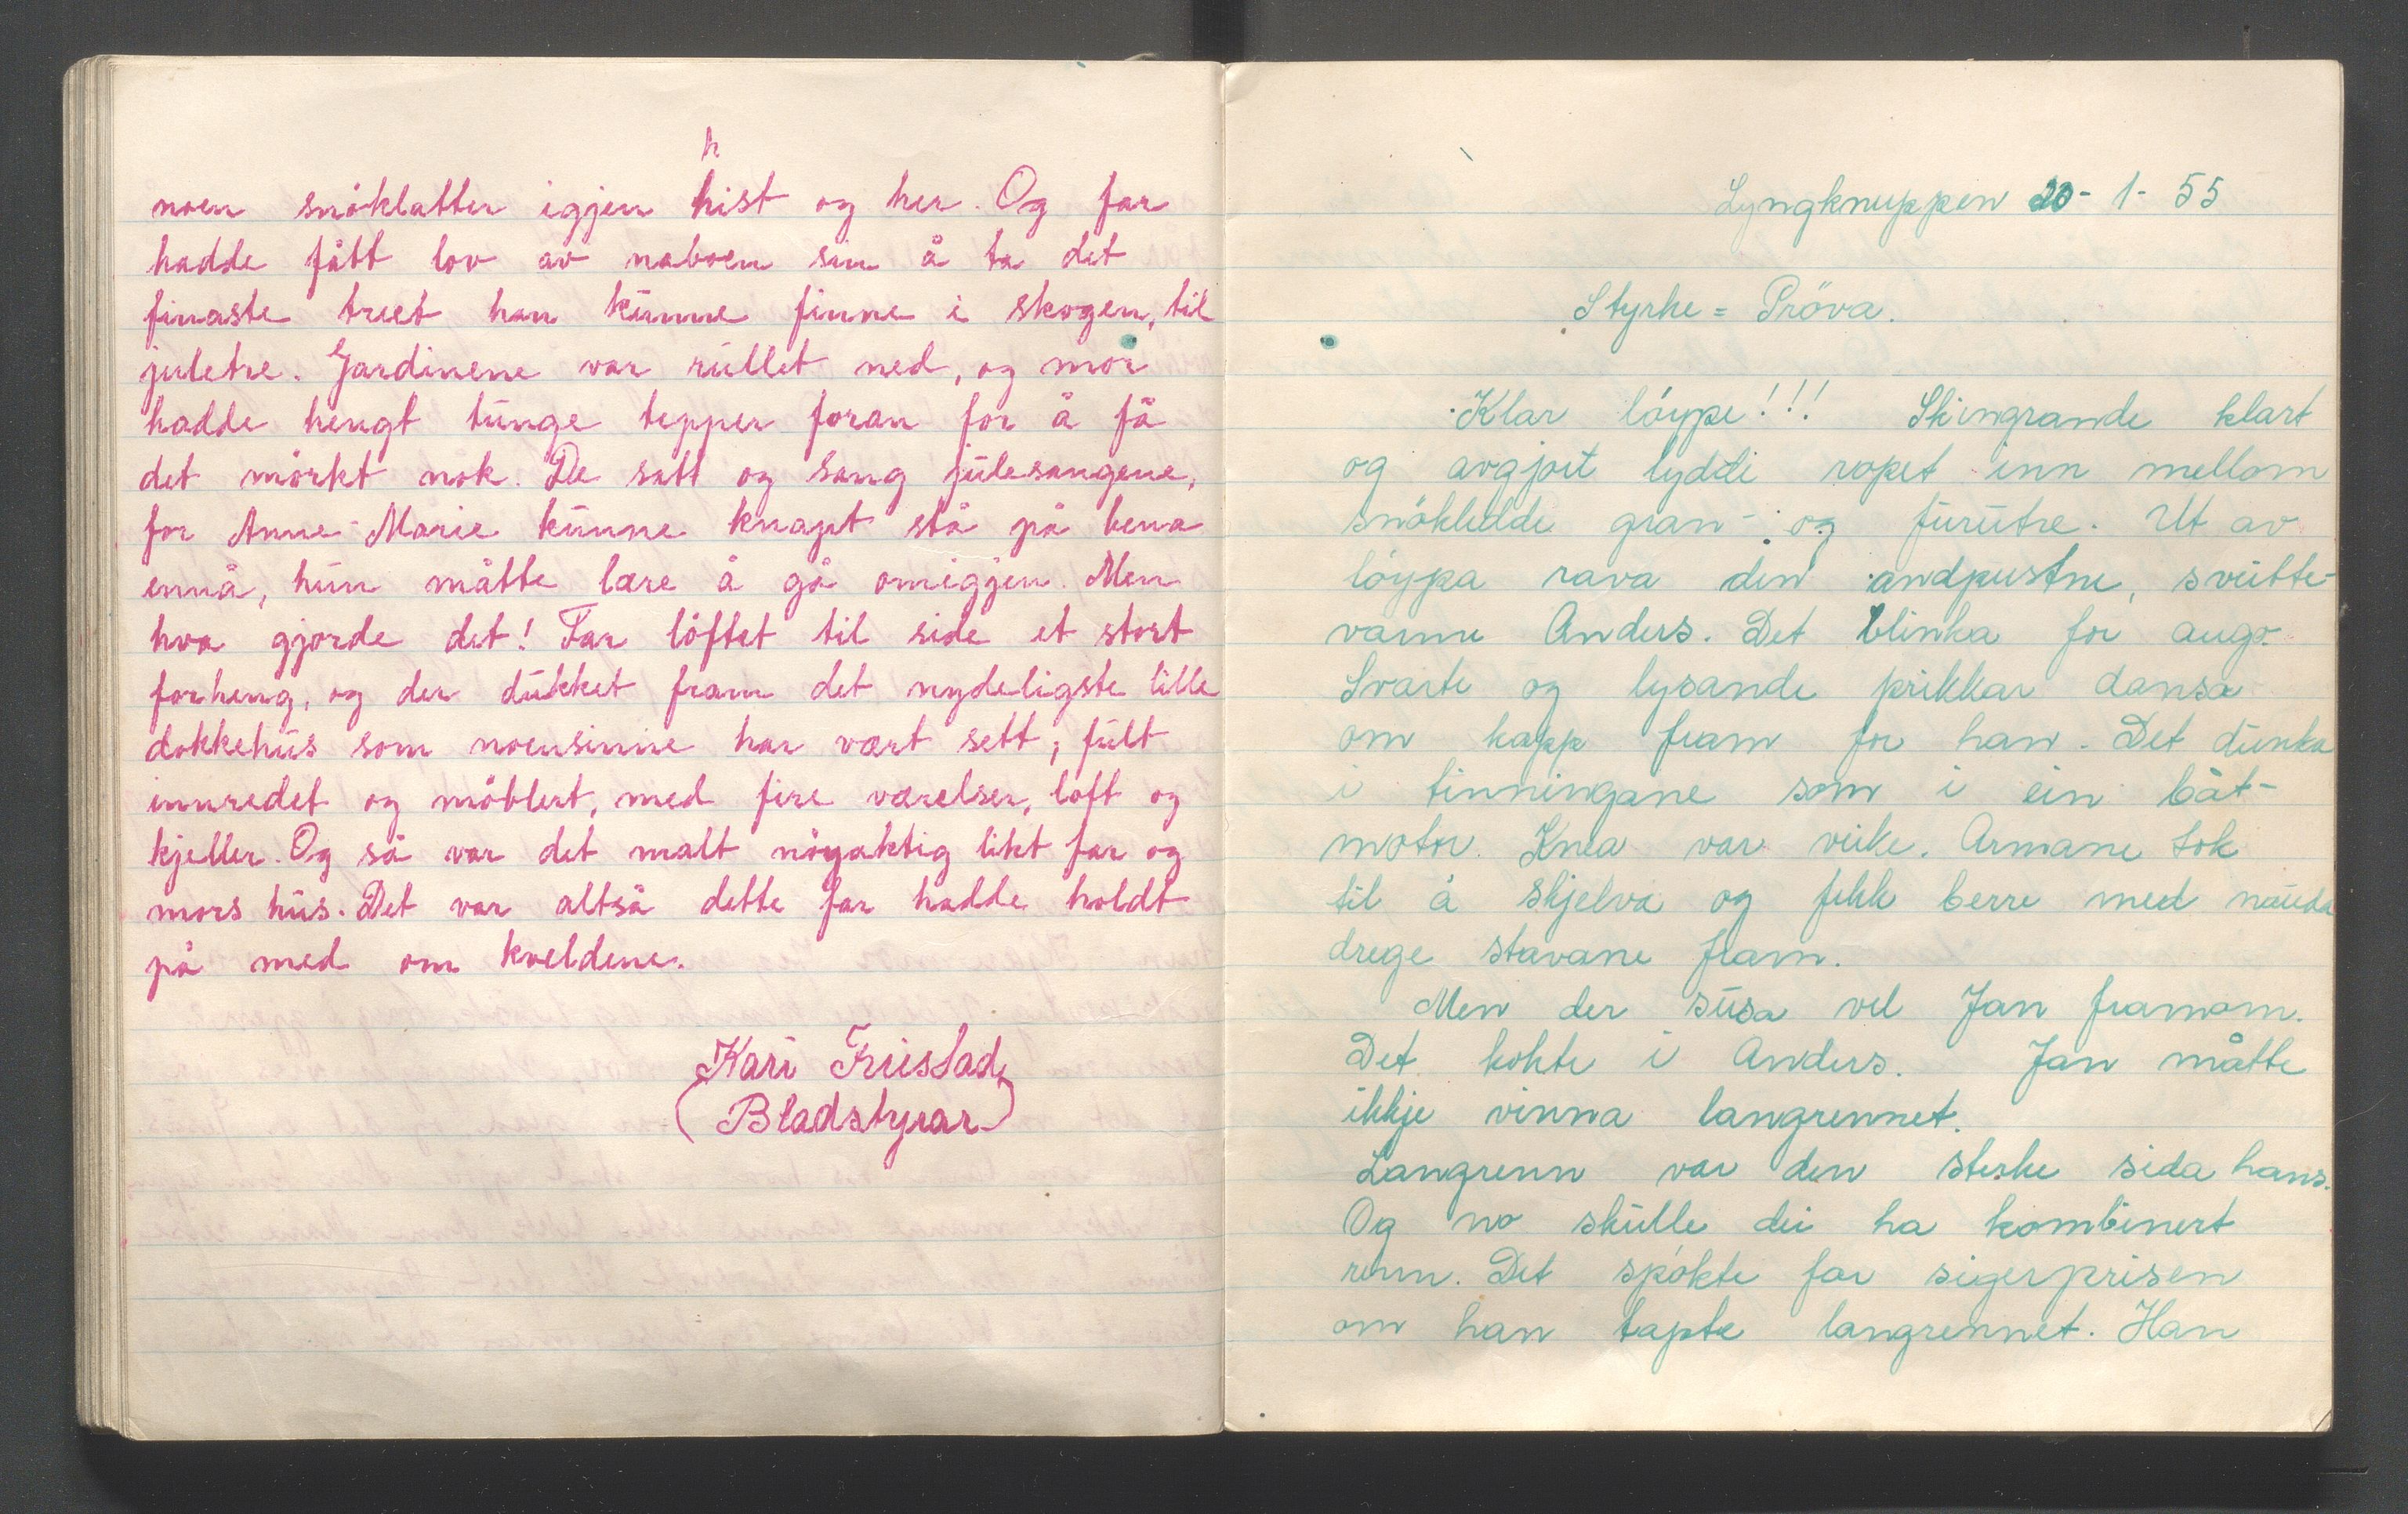 noen snöklatter igjen hist og her. Og far
hadde fått lov av naboen sin å ta det
finaste treet han kunne finne i skogen, til
juletre. Gardinene var rullet ned, og mor
hadde hengt tunge tepper foran for å få
det mörkt nok. De satt og sang julesangene,
for Anne-Marie kunne knapt stå på bena
ennå, hun måtte lære å gå omigjen. Men
hva gjorde det! Far löftet til side et stort
forheng, og der dukket fram det nydeligste lille
dokkehus som noensinne har vært sett, fult
innredet og möblert, med fire værelser, loft og
kjeller. Og så var det malt nöyaktig likt far og
mors hus. Det var altså dette far hadde holdt
på med om kveldene.
Kari Friestad
(Bladstyrar)
Lyngknuppen 20-1-55
Styrke = Pröva.
Klar löype!!! Skingrande klart
og avgjort lydde ropet inn mellom
snökledde gran- og furutre. Ut av
löypa rava den andpustne, sveitte-
varme Anders. Det blinka for augo.
Svarte og lysande prikkar dansa
om kapp fram for han. Det dunka
i tinningane som i ein båt-
motor. Knea var veike. Armane tok
til å skjelva og fekk berre med nauda
drege stavane fram.
Men der susa vel Jan framom.
Det kokte i Anders. Jan måtte
ikkje vinna langrennet.
Langrenn var den sterke sida hans.
Og no skulle dei ha kombinert
renn. Det spökte for sigerprisen
om han tapte langrennet. Han